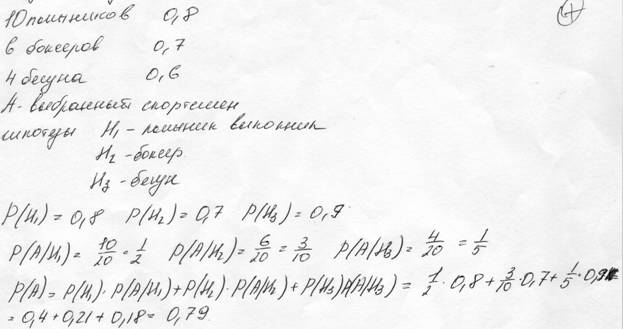 10 лыжников 0,8
6 боксеров 0,7
4 бегуна 0,6
А - выбранный спортсмен
гипотезы H₁ - лыжник выполнил
H₂ - боксер
H₃ - бегун
P(H₁) = 0,8 P(H₂) = 0,7 P(H₃) = 0,9
P(A/H₁) = 10/20 = 1/2 P(A/H₂) = 6/20 = 3/10 P(A/H₃) = 4/20 = 1/5
P(A) = P(H₁) · P(A/H₁) + P(H₂) · P(A/H₂) + P(H₃) P(A/H₃) = 1/2 · 0,8 + 3/10 · 0,7 + 1/5 · 0,9 =
= 0,4 + 0,21 + 0,18 = 0,79